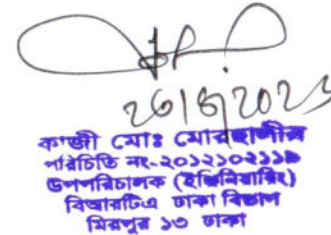 26/8/2023
কাজী মোঃ মোরছালীন
পরিচিতি নং-২০১২১০২১১৯
উপপরিচালক (ইঞ্জিনিয়ারিং)
বিআরটিএ ঢাকা বিভাগ
মিরপুর ১৩ ঢাকা